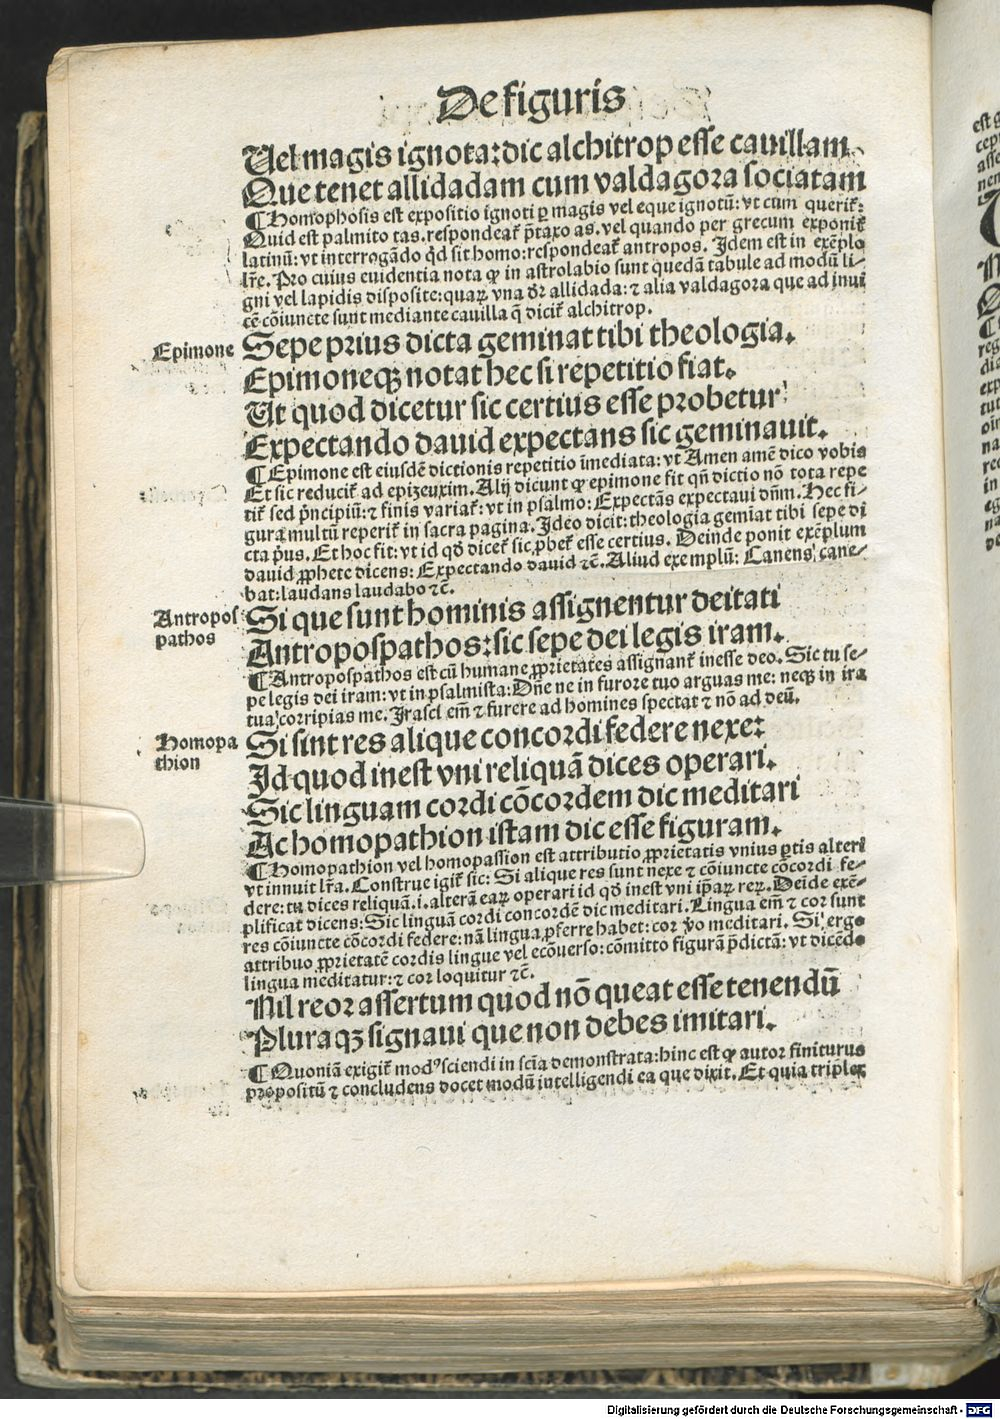 De figuris
Uel magis ignota: dic alchitrop esse cauillam.
Que tenet allidadam cum valdagora sociatam
¶ Homophosis est expositio ignoti ꝑ magis vel eque ignotū: vt cum querit̃:
Quid est palmito tas. respondeat̃ p̃taxo as. vel quando per grecum exponit̃
latinū: vt interrogãdo qd̃ sit homo: respondeat̃ antropos. Idem est in exẽplo
lr̃e. Pro cuius euidentia nota ꝙ in astrolabio sunt quedã tabule ad modū li⸗
gni vel lapidis disposite: quaꝝ vna dr̃ allidada: ⁊ alia valdagora que ad inui
cẽ cõiuncte sunt mediante cauilla q̃ dicit̃ alchitrop.
Epimone
Sepe prius dicta geminat tibi theologia.
Epimoneqꝫ notat hec si repetitio fiat.
Ut quod dicetur sic certius esse probetur
Expectando dauid expectans sic geminauit.
¶ Epimone est eiusdẽ dictionis repetitio ĩmediata: vt Amen amẽ dico vobis
Et sic reducit̃ ad epizeuxim. Alij dicunt ꝙ epimone fit qñ dictio nõ tota repe
tit̃ sed p̃ncipiū: ⁊ finis variat̃: vt in psalmo: Expectãs expectaui dñm. Hec fi⸗
gura multū reperit̃ in sacra pagina. Ideo dicit: theologia gemĩat tibi sepe di
cta p̃us. Et hoc fit: vt id qd̃ dicet̃ sic ꝓbet̃ esse certius. Deinde ponit exẽplum
dauid ꝓphete dicens: Expectando dauid ⁊c̃. Aliud exemplū: Canens cane⸗
bat: laudans laudabo ⁊c̃.
Antropos
pathos
Si que sunt hominis assignentur deitati
Antropospathos: sic sepe dei legis iram.
¶ Antropospathos est cū humane ꝓprietates assignant̃ inesse deo. Sic tu se⸗
pe legis dei iram: vt in psalmista: Dñe ne in furore tuo arguas me: neqꝫ in ira
tua corripias me. Irasci em̃ ⁊ furere ad homines spectat ⁊ nõ ad deū.
Homopa
thion
Si sint res alique concordi federe nexe:
Id quod inest vni reliquã dices operari.
Sic linguam cordi cõcordem dic meditari
Ac homopathion istam dic esse figuram.
¶ Homopathion vel homopassion est attributio ꝓprietatis vnius ꝑtis alteri
vt innuit lr̃a. Construe igit̃ sic: Si alique res sunt nexe ⁊ cõiuncte cõcordi fe⸗
dere: tu dices reliquã .i. alterã eaꝝ operari id qd̃ inest vni ip̃aꝝ reꝝ. Deide exẽ⸗
plificat dicens: Sic linguã cordi concordẽ dic meditari. Lingua em̃ ⁊ cor sunt
res cõiuncte cõcordi federe: nã lingua ꝓferre habet: cor v̊o meditari. Si ergo
attribuo ꝓprietatẽ cordis lingue vel ecõuerso: cõmitto figurã p̃dictã: vt dicẽdo
lingua meditatur: ⁊ cor loquitur ⁊c̃.
Nil reor assertum quod nõ queat esse tenendū
Pluraqꝫ signaui que non debes imitari.
¶ Quoniã exigit̃ modꝰ sciendi in scĩa demonstrata: hinc est ꝙ autor finiturus
propositū ⁊ concludens docet modū intelligendi ea que dixit. Et quia triplex
Digitalisierung gefördert durch die Deutsche Forschungsgemeinschaft - DFG